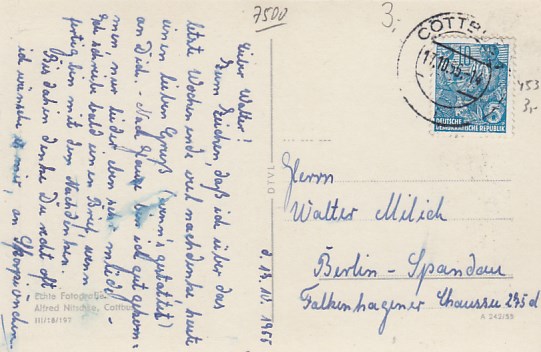 7500
3,-
COTTB
17.10.55-14
10
DEUTSCHE
DEMOKRATISCHE REPUBLIK
453
3,-
Lieber Walter!
Zum Zeichen, daß ich über das
letzte Wochenende viel nachdenke heute
einen lieben Gruß (wenn's gestattet)
an Dich. - Nach Hause bin ich gut gekom-
men nur leider eben sehr müde.
Ich schreibe bald einen Brief, wenn
fertig bin mit den Nachdenken.
Bis dahin denke Du recht oft
ich wünsche es mir, an Skorpiönchen.
d. 17. 10. 1955
DTVL
Herrn
Walter Milich
Berlin-Spandau
Falkenhagener Chaussee 235d
Echte Fotografie
Alfred Nitschke, Cottbus
III/18/197
A 242/55